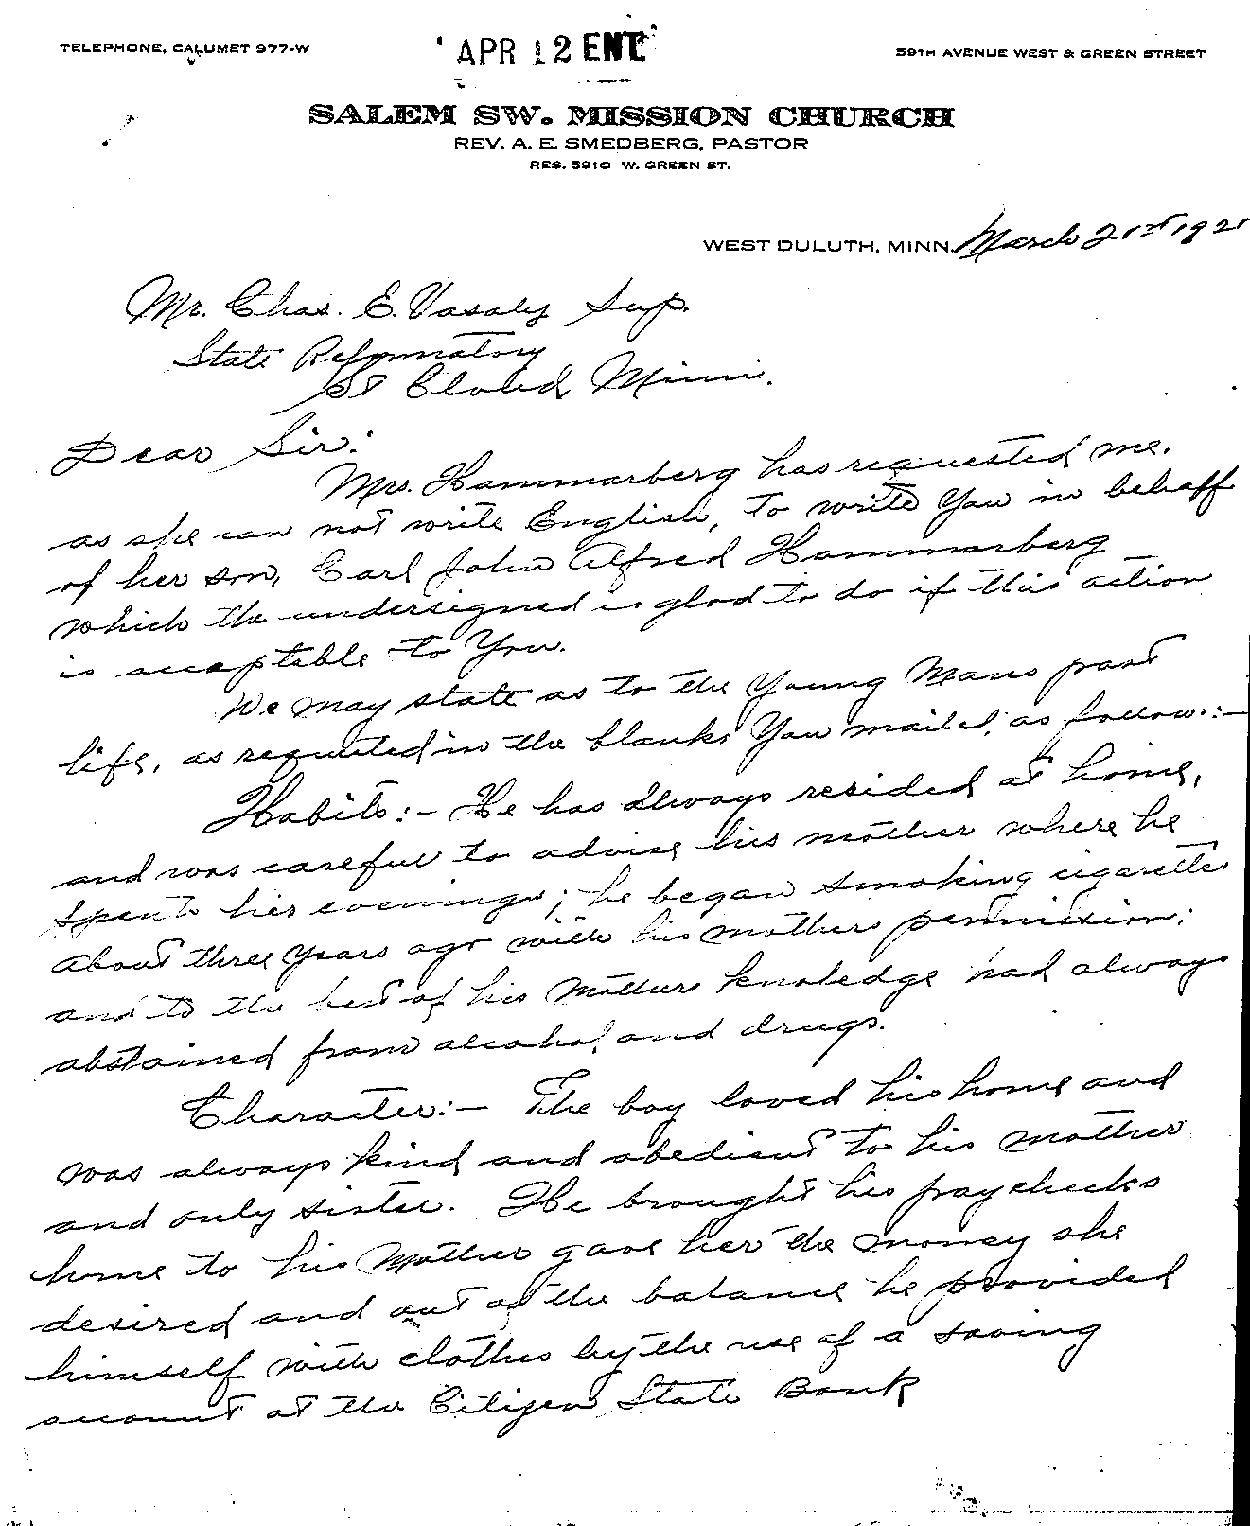 TELEPHONE, CALUMET 977-W
APR 12 ENT
59TH AVENUE WEST & GREEN STREET
SALEM SW. MISSION CHURCH
REV. A. E. SMEDBERG, PASTOR
RES. 5910 W. GREEN ST.
WEST DULUTH, MINN. March 21st 192
Mr. Chas. E. Vasaly Sup.
State Reformatory
St Cloud Minn.
Dear Sir:
Mrs. Hammarberg has requested me.
as she can not write English, to write You in behalf
of her son, Carl John Alfred Hammarberg
which the undersigned is glad to do if this action
is acceptable to You.
We may state as to the Young Mans past
life, as requested in the blanks You mailed, as follow:-
Habits:- He has always resided at home,
and was careful to advise his mother where he
spent his evenings; he began smoking cigarette
about three years ago with his mothers permission;
and to the best of his Mothers knoledge had always
abstained from alcohol and drugs.
Character:- The boy loved his home and
was always kind and obedient to his mother
and only sister. He brought his paychecks
home to his Mother gave her the money she
desired and out of the balance he provided
himself with clothes by the use of a saving
account at the Citizen State Bank